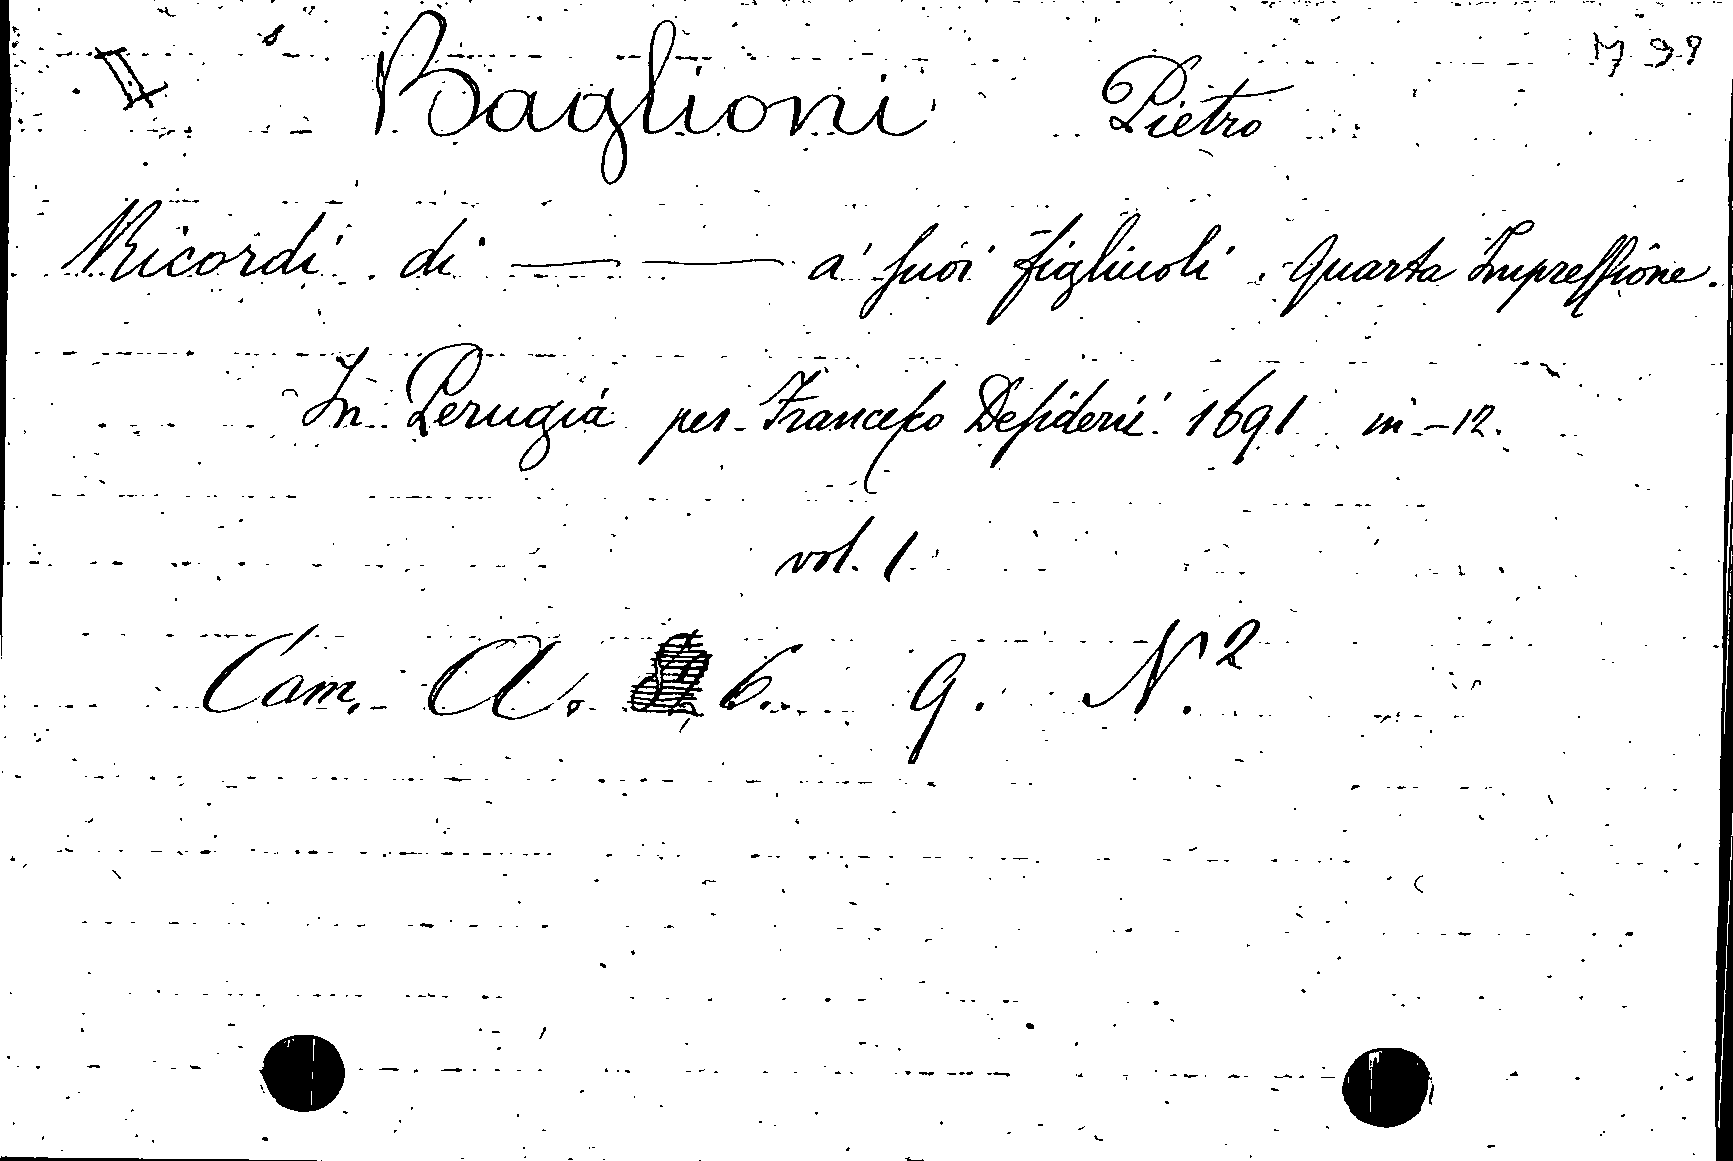 II Baglioni Pietro
Ricordi di —— —— a' suoi figliuoli. Quarta Impressione.
In Perugia per Francesco Desiderii 1691 in-12.
vol. 1
Cam. A. 6. 9. N.2